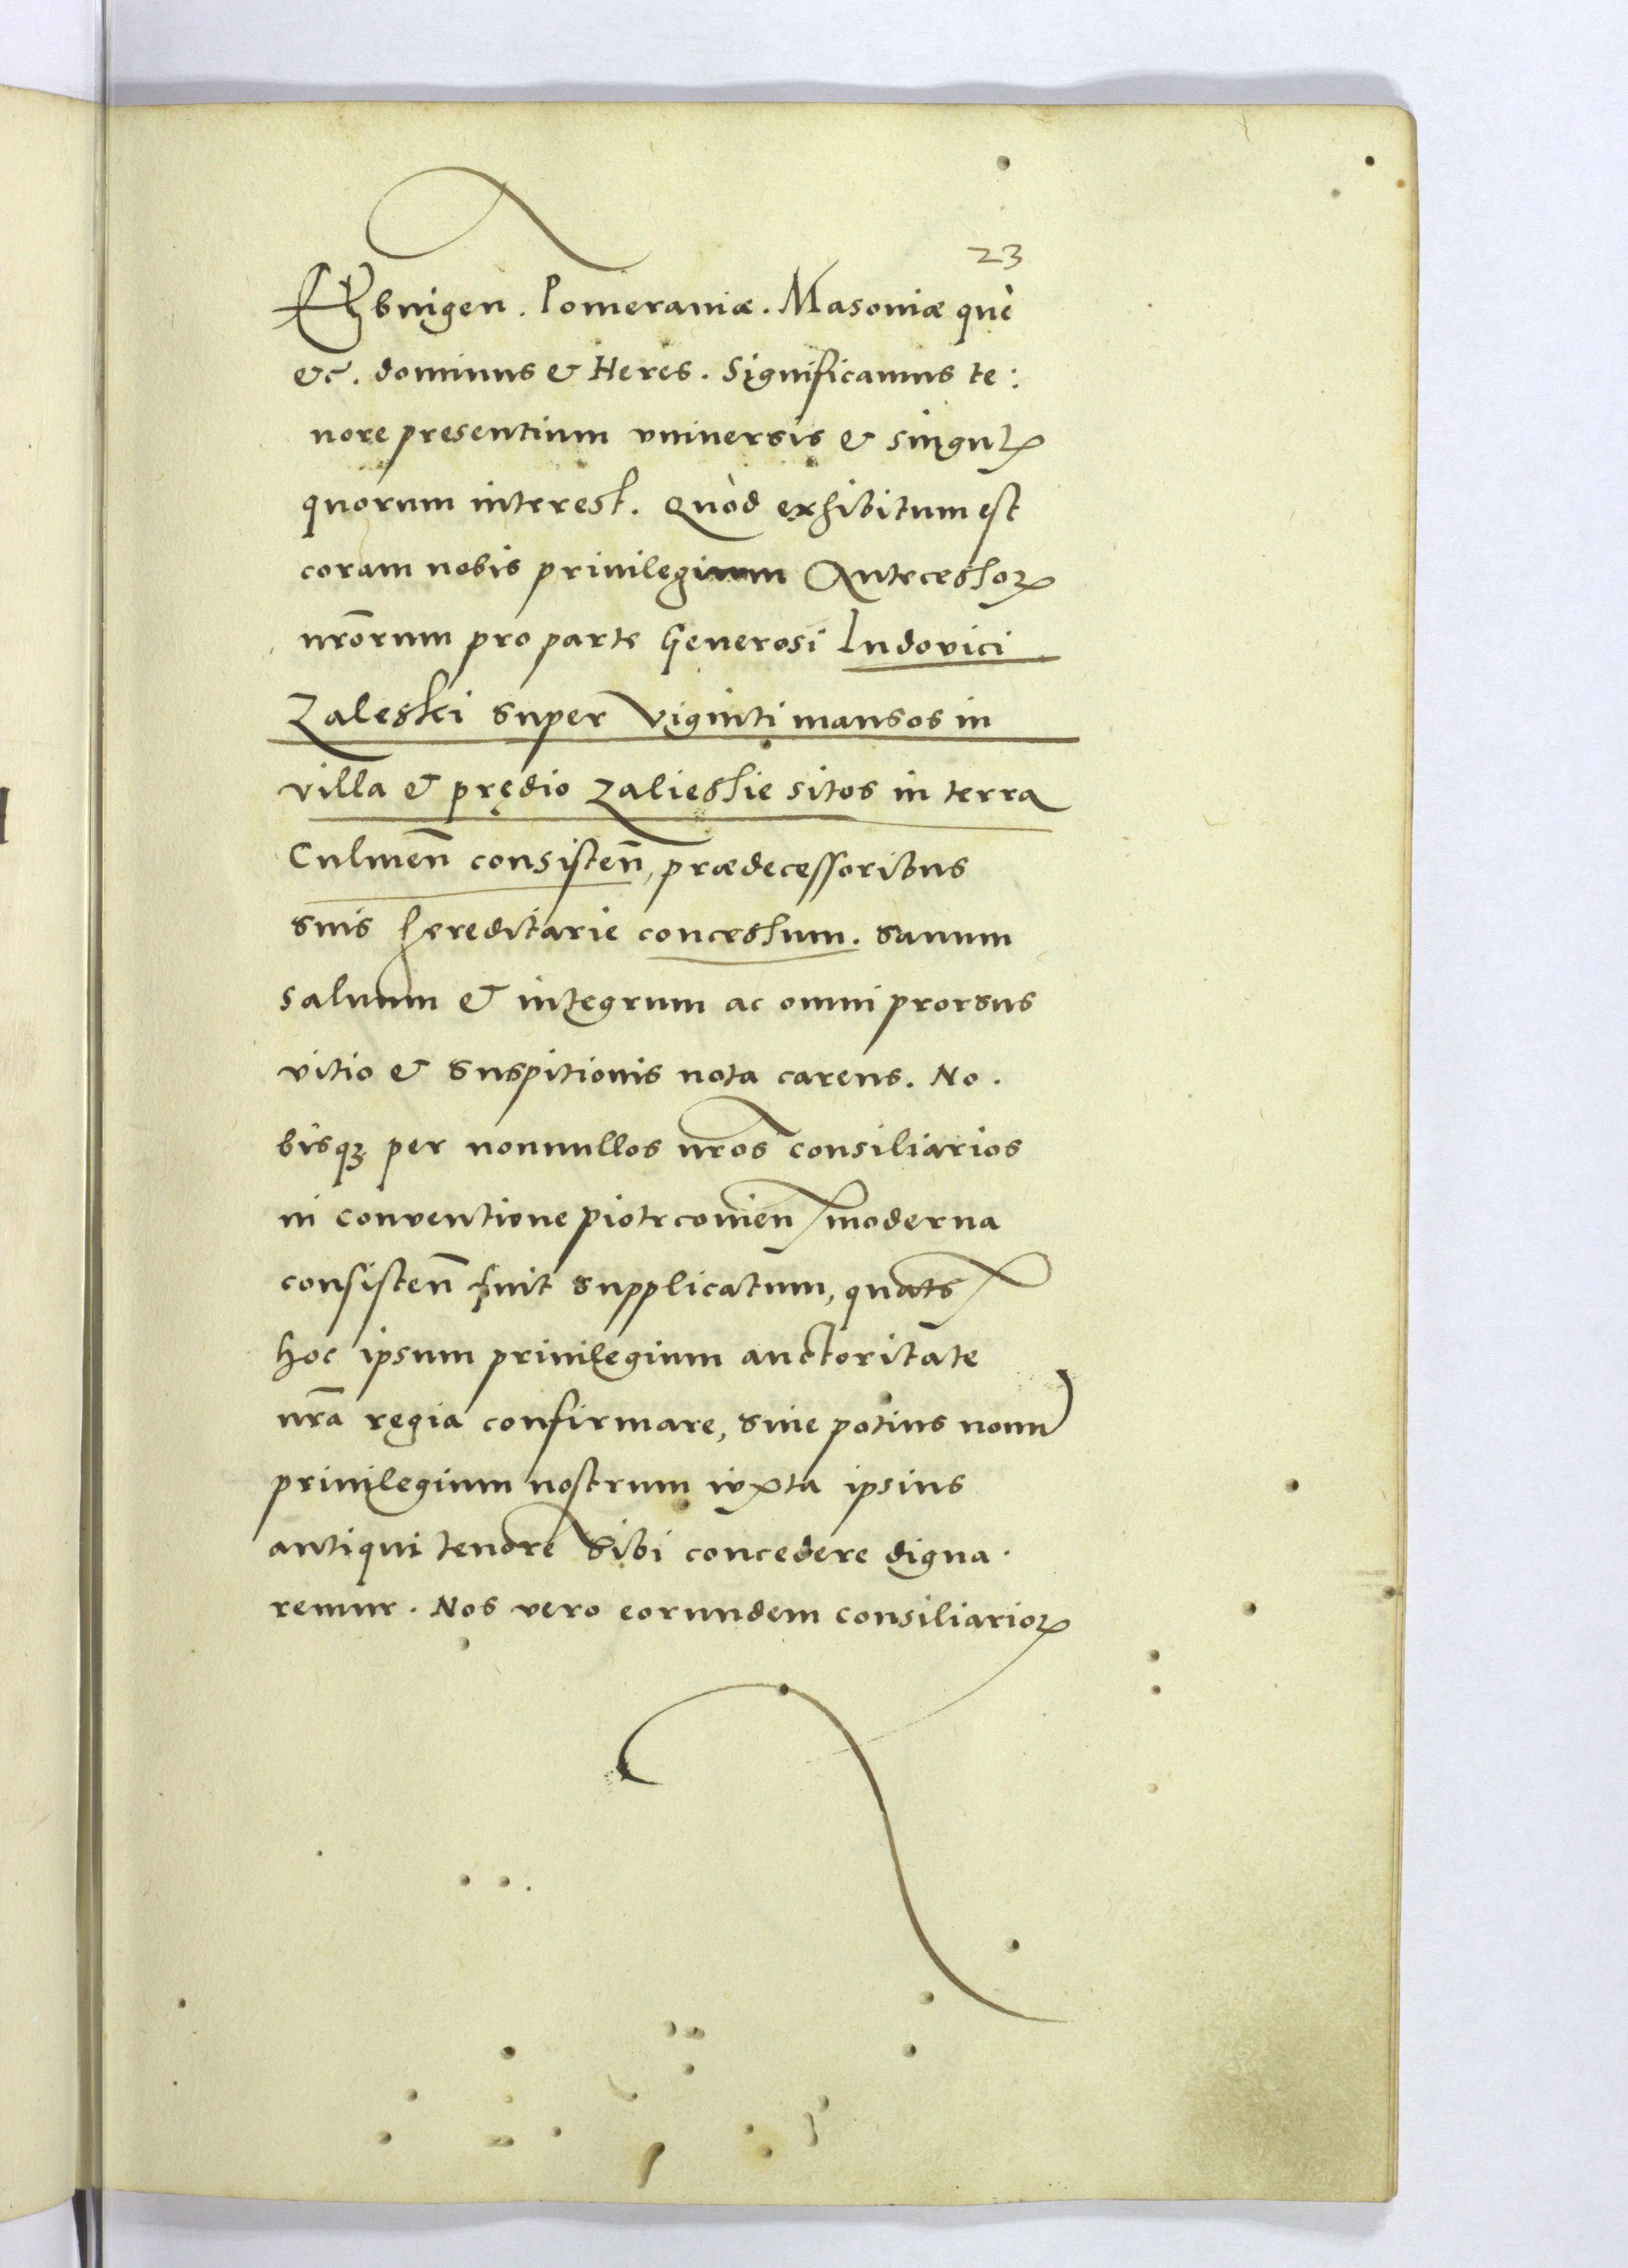 23
Elbingen. Pomeraniæ. Masoniæ què
&c. dominus & Heres. Significamus te:
nore presentium vniuersis & singulꝝ
quorum interest. Quòd exhibitum est
coram nobis priuilegium Antecessoꝝ
nr̃orum pro parte Generosi Ludovici
Zaleski super viginti mansos in
villa & prędio Zalieslie sitos in terra
Culmen̄ consisten̄, prædecessoribus
suis hereditarie concessum. sanum
saluum & integrum ac omni prorsus
vitio & suspitionis nota carens. No.
bisqꝫ per nonnullos nr̃os consiliarios
in conventione piotrcouien̄ moderna
consisten̄ fuit supplicatum, quats
hoc ipsum priuilegium auctoritate
nr̃a regia confirmare, siue potius nouu
priuilegium nostrum iuxta ipsius
antiqui tenore sibi concedere digna.
remur. Nos vero eorundem consiliarioꝝ